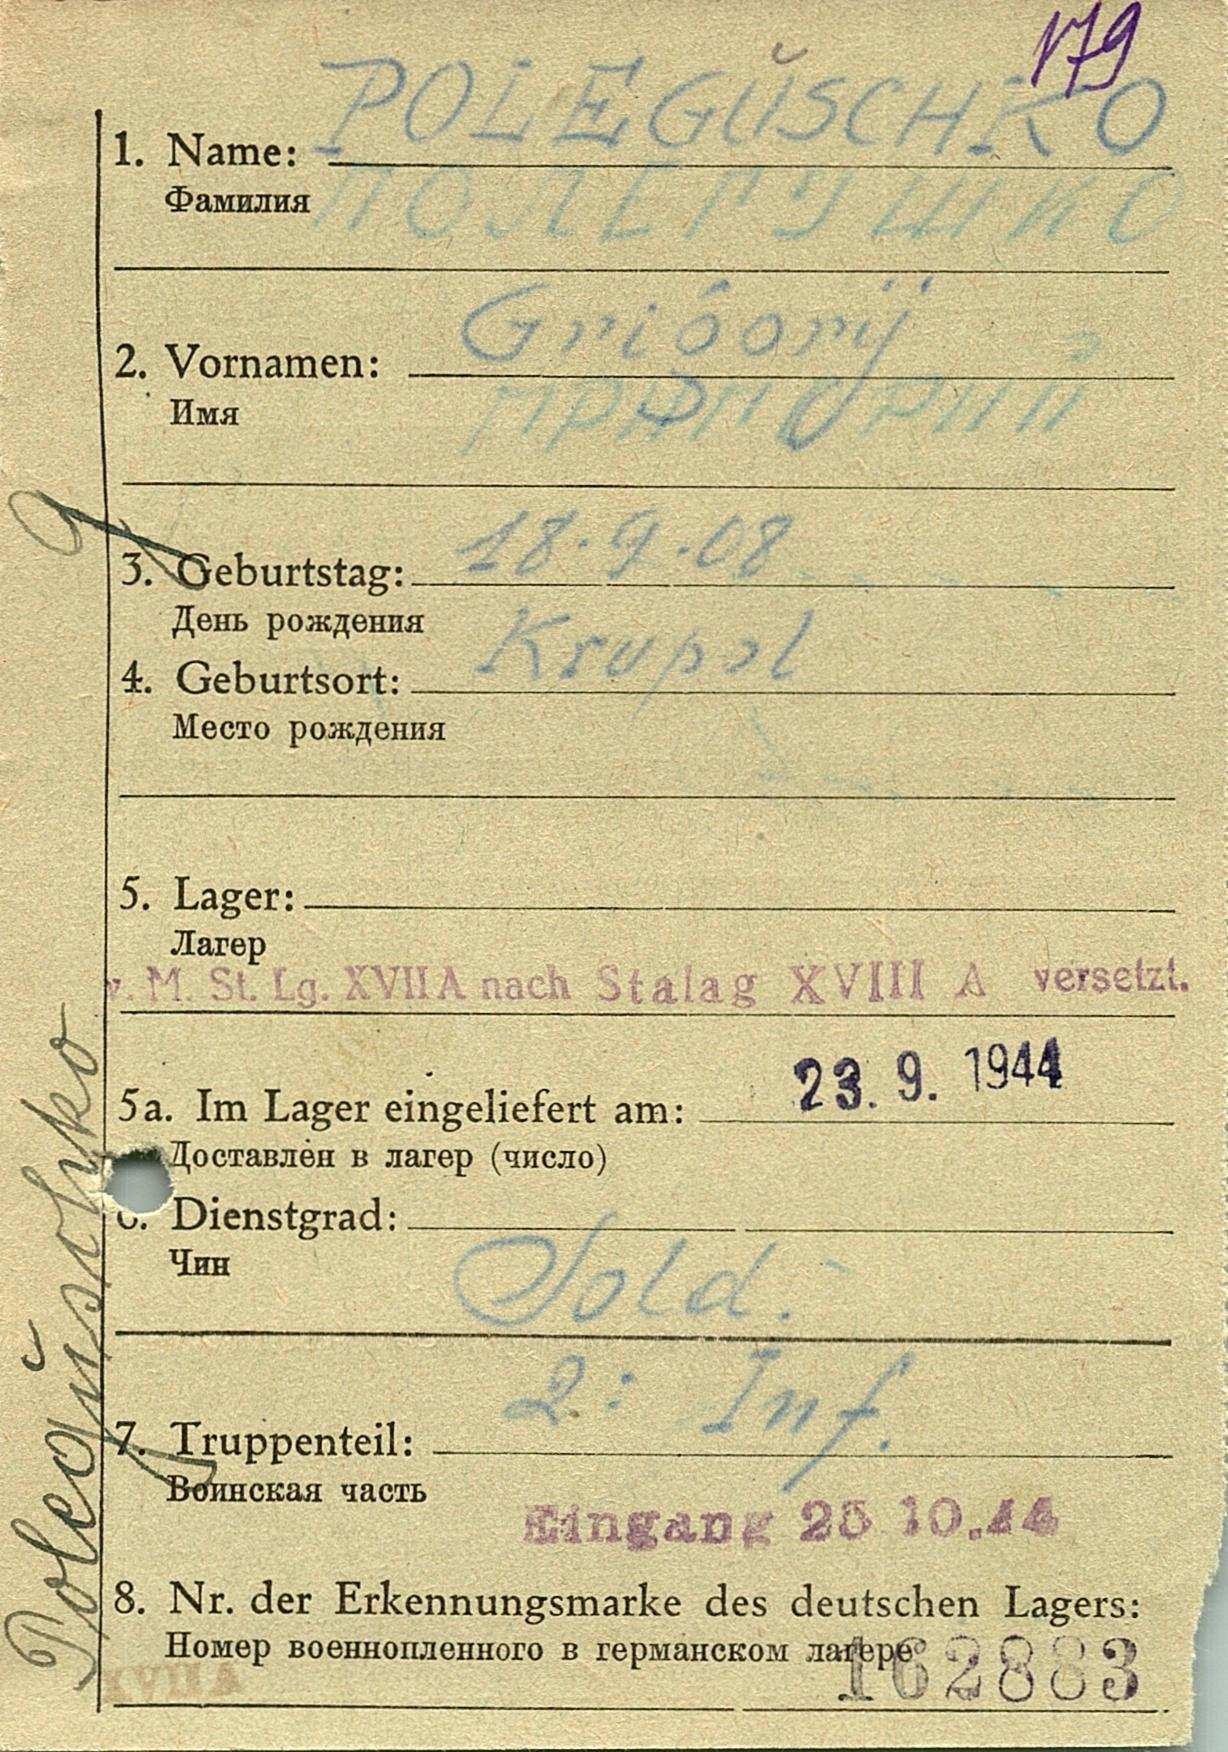 179
1. Name: POLEGŬSCHKO
Фамилия ПОЛЕГУШКО
2. Vornamen: Grigorij
Имя
9
3. Geburtstag: 18.9.08
День рождения
4. Geburtsort: Krupol
Место рождения
5. Lager:
Лагер
v. M. St. Lg. XVII A nach Stalag XVIII A versetzt.
5a. Im Lager eingeliefert am: 23. 9. 1944
Доставлен в лагер (число)
6. Dienstgrad: Sold.
Чин
2: Inf.
7. Truppenteil:
Воинская часть
Eingang 25 10.44
8. Nr. der Erkennungsmarke des deutschen Lagers:
Номер военнопленного в германском лагере
XVII A 162883
Polegŭschko